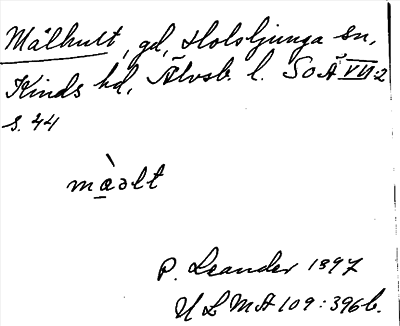 Målhult, gd, Holsljunga sn,
Kinds hd, Älvsb. l. SOÄ VII:2
s. 44
mæ̀əlt
P. Leander 1897
ULMA 109:396b.